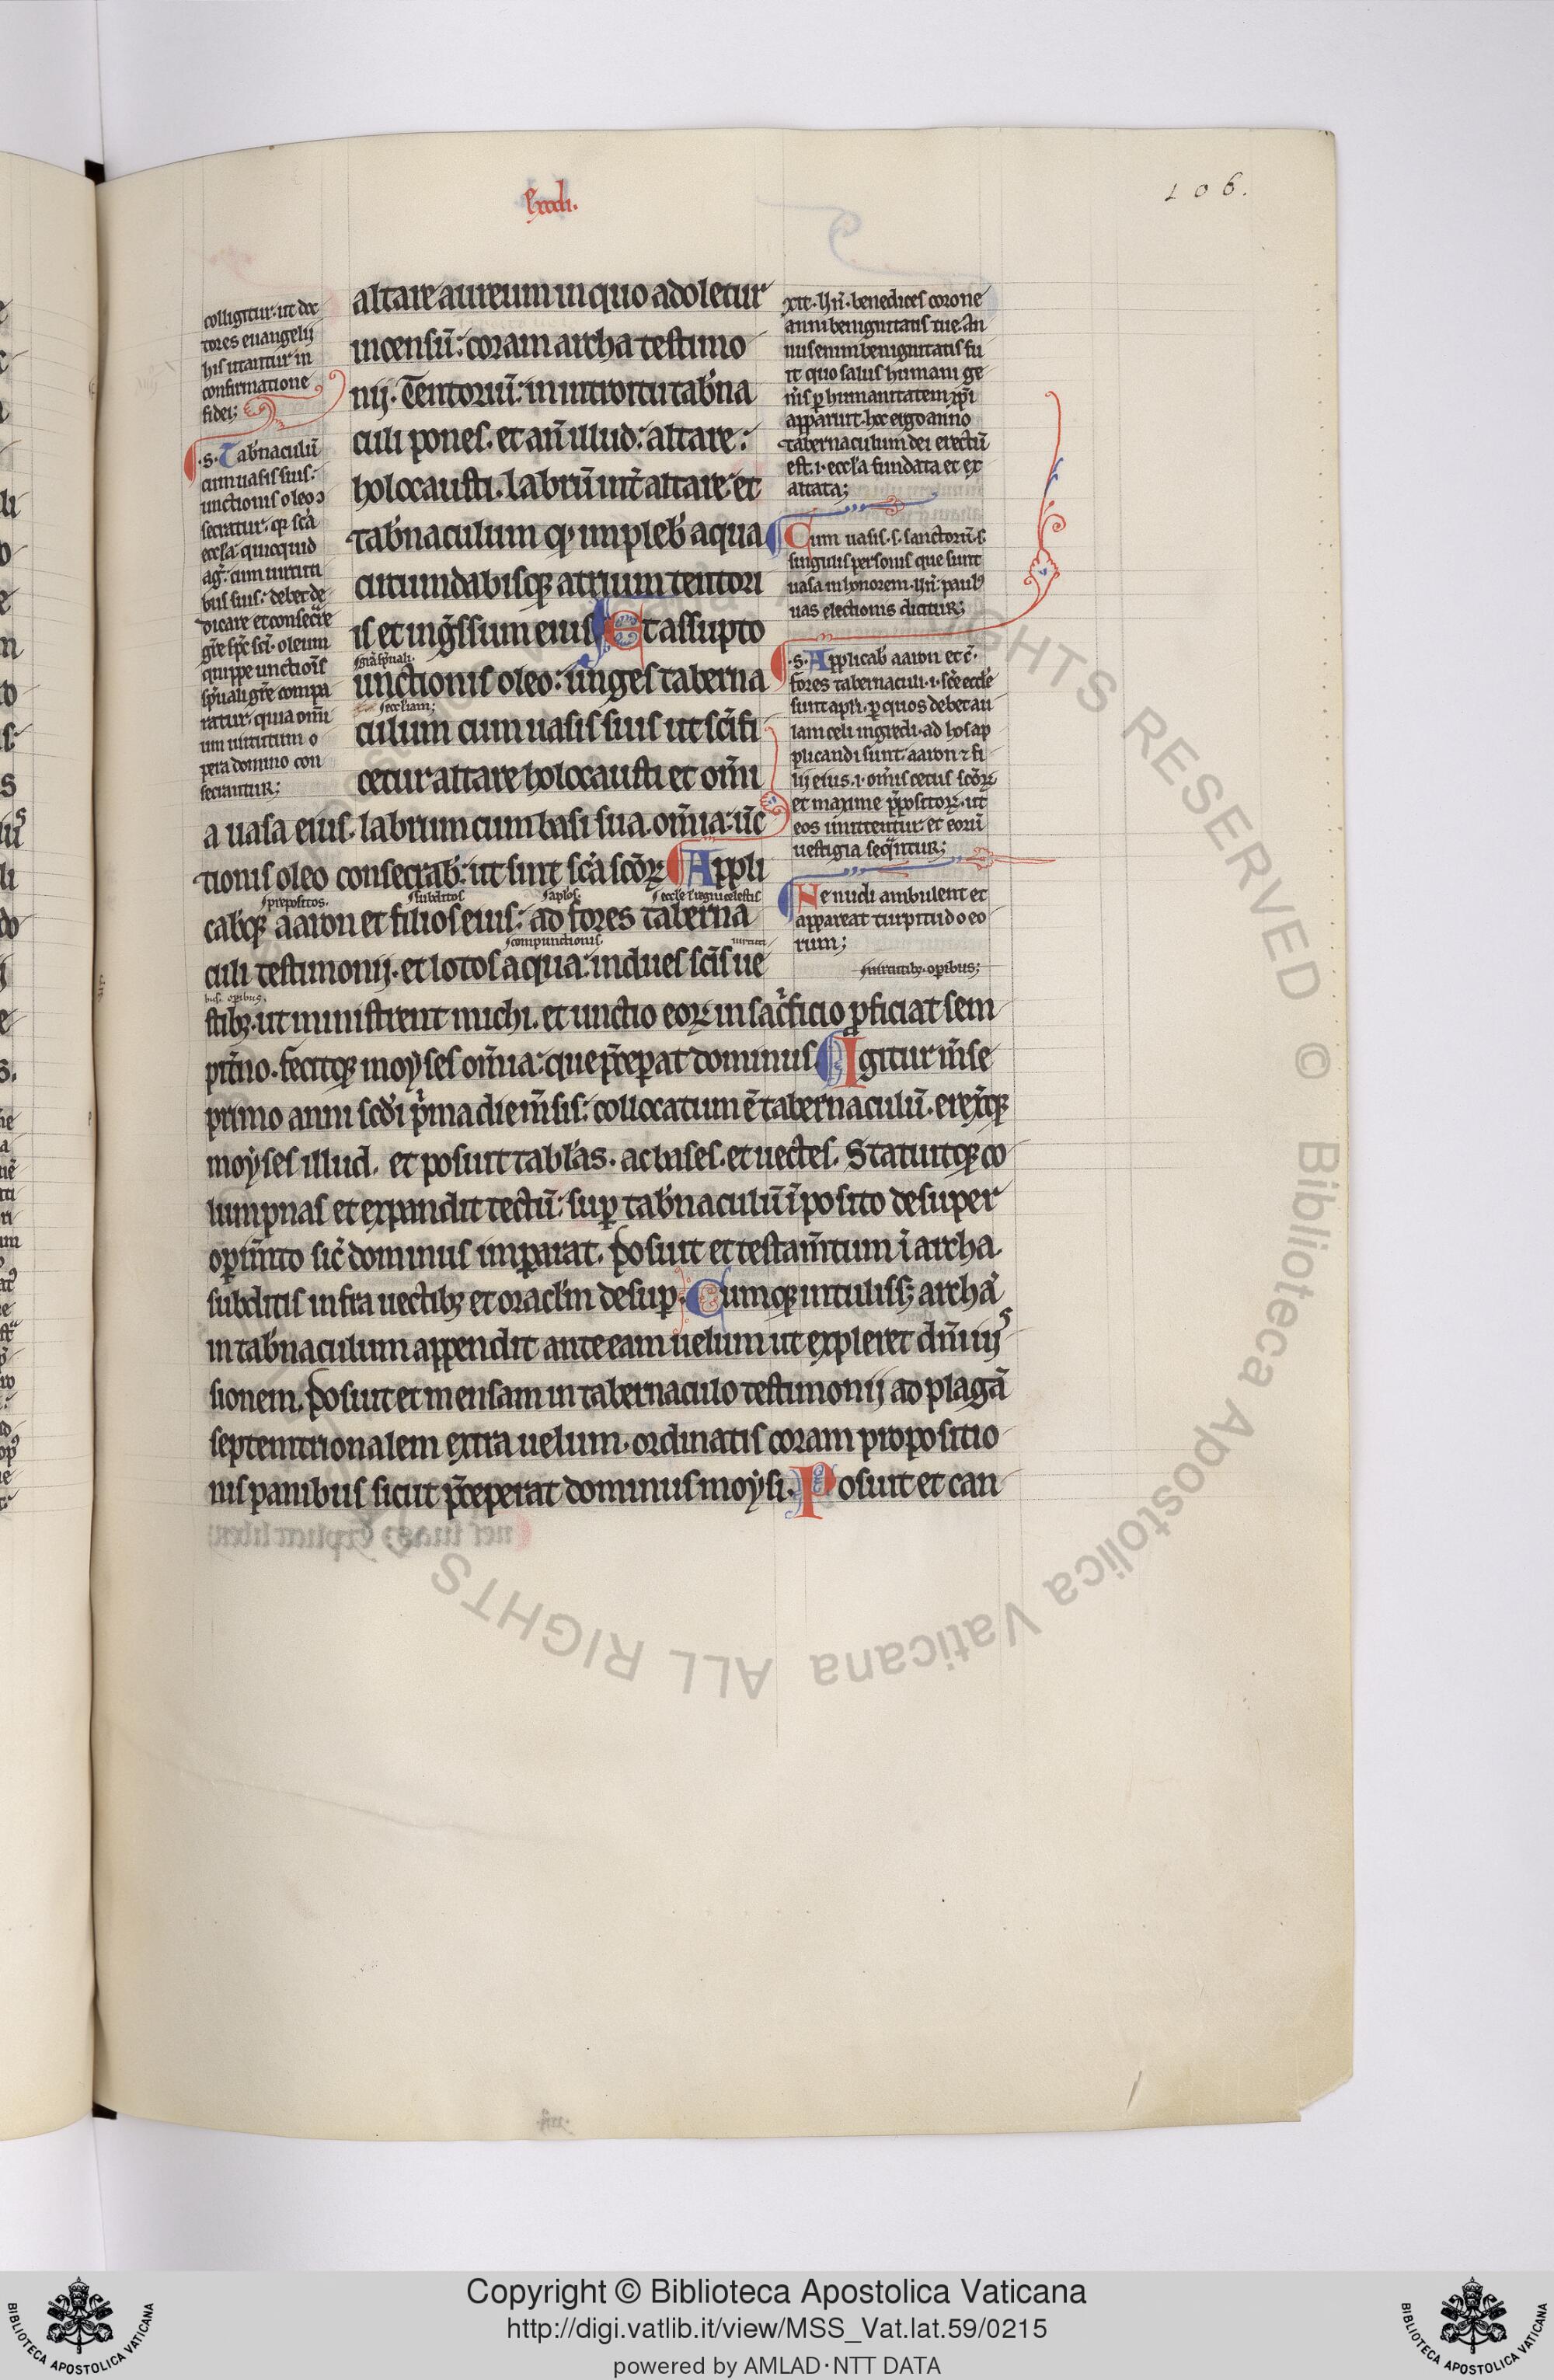 Exodi.
106.
colligitur. ut doc
tores euangelij
his utantur in
confirmatione
fidei;
.s. Tab̉naculū
cum uasis suis:
unctionis oleo ↄ
secratur. qꝫ sc̄a
eccl̄a quicquid
ag̉. cum uirtuti
bus suis: debet de
dicare et consec̉re
gr̄e sp̄c sc̄i. oleum
quippe unctiōis
sp̄uali gr̄e compa
ratur. quia om̄i
um uirtutum o
pera domino con
secrantur;
altare aureum in quo adoletur
incensū: coram archa testimo
nij. Tentoriū: in introitu tab̉na
culi pones. et an̄ illud: altare:
holocausti. labrū int̉ altare et
tab̉naculum qͥ impleb̉ aqua
circumdabisqꝫ atrium tentori
is et ing̉ssum eius Et assupto
gr̄a sp̄uali.
unctionis oleo: unges taberna
eccl̄iam;
culum cum uasis suis ut sc̄ifi
cetur altare holocausti et om̄i
a uasa eius. labrum cum basi sua. om̄ia: ūc
tionis oleo consecrab̉: ut sint sc̄a sc̄oꝝ Appli
prepositos. subditos aplōs. eccl̄e l̉ regni celestis
cab̉qꝫ aaron et filios eius: ad fores taberna
compunctionis. uirtuti
culi testimonij. et lotos aqua: indues sc̄is ue
bus. opibus.
stibꝫ. ut ministrent michi. et unctio eoꝝ in sac̉ficio ꝓficiat sem
pit̉no. fecitqꝫ moyses om̄ia: que p̄ceꝑat dominus Igitur m̄se
primo anni sc̄di pͥma die m̄sis: collocatum ē tabernaculū. erex̉qꝫ
moyses illud. et posuit tabl̉as. ac bases. et uectes. Statuitqꝫ co
lumpnas et expandit tectū: suꝑ tab̉naculū īposito desuper
oꝑim̄to sic̉ dominus imꝑarat. Posuit et testam̄tum ī archa.
subditis infra uectibꝫ et oracl̄m desuꝑ. Cumqꝫ intulissꝫ archā
in tab̉naculum appendit ante eam uelum ut expleret dn̄i iuſ
sionem. Posuit et mensam in tabernaculo testimonij ad plagā
septentrionalem extra uelum. ordinatis coram propositio
nis panibus sicut p̄ceperat dominus moysi. Posuit et can
xit. Un̄. benedices corone
anni benignitatis tue. An
nus enim benignitatis fu
it quo salus humani ge
n̄is ꝑ humanitatem xp̄i
apparuit. hoc ergo anno
tabernaculum dei erectū
est. i. eccl̄a fundata et ex
altata;
Cum uasis. s. sanctorū. s.
singulis personis que sunt
uasa in honorem. Un̄. paulꝰ
uas electionis dicitur;
.s. Applicab̉ aaron et c̄.
fores tabernaculi. i. sc̄e eccl̄e
sunt apl̄i. ꝑ quos debet au
lam celi ingredi. ad hos ap
plicandi sunt. aaron ⁊ fi
lij eius. i. om̄is cetus sc̄oꝝ
et maxime p̄positoꝝ. ut
eos imitentur. et eorū
uestigia seqͣntur;
Ne nudi ambulent et
appareat turpitudo eo
rum;
in uirtutibꝫ. oꝑibus;
Copyright © Biblioteca Apostolica Vaticana
http://digi.vatlib.it/view/MSS_Vat.lat.59/0215
powered by AMLAD·NTT DATA
BIBLIOTECA APOSTOLICA VATICANA
BIBLIOTECA APOSTOLICA VATICANA
ALL RIGHTS RESERVED © Biblioteca Apostolica Vaticana